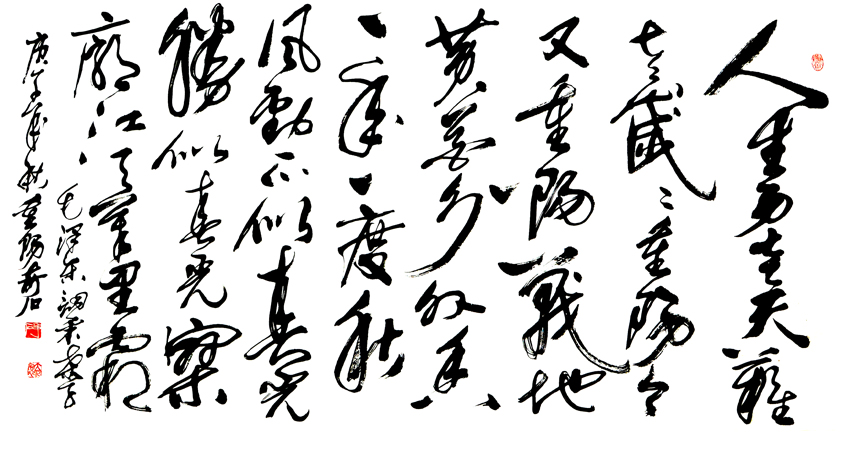 人生易老天難
老歲〻重陽今
又重陽戰地
黄花分外香
一年一度秋
風勁不似春光
勝似春光寥
廓江天萬里霜
毛澤東詞采桑子
庚子年秋陽奇石